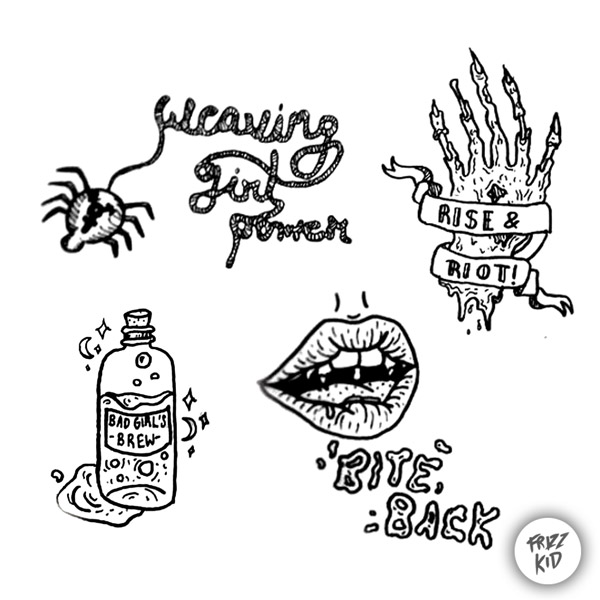 weaving
girl
power
RISE &
RIOT!
BAD GIRL'S
-BREW-
BITE
BACK
FRIZZ
KID